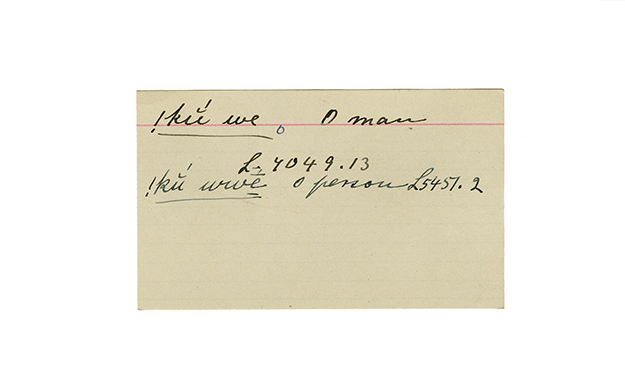 !kṹ we, O man
L. 4049.13
!kṹ wwĕ O person L5451.2